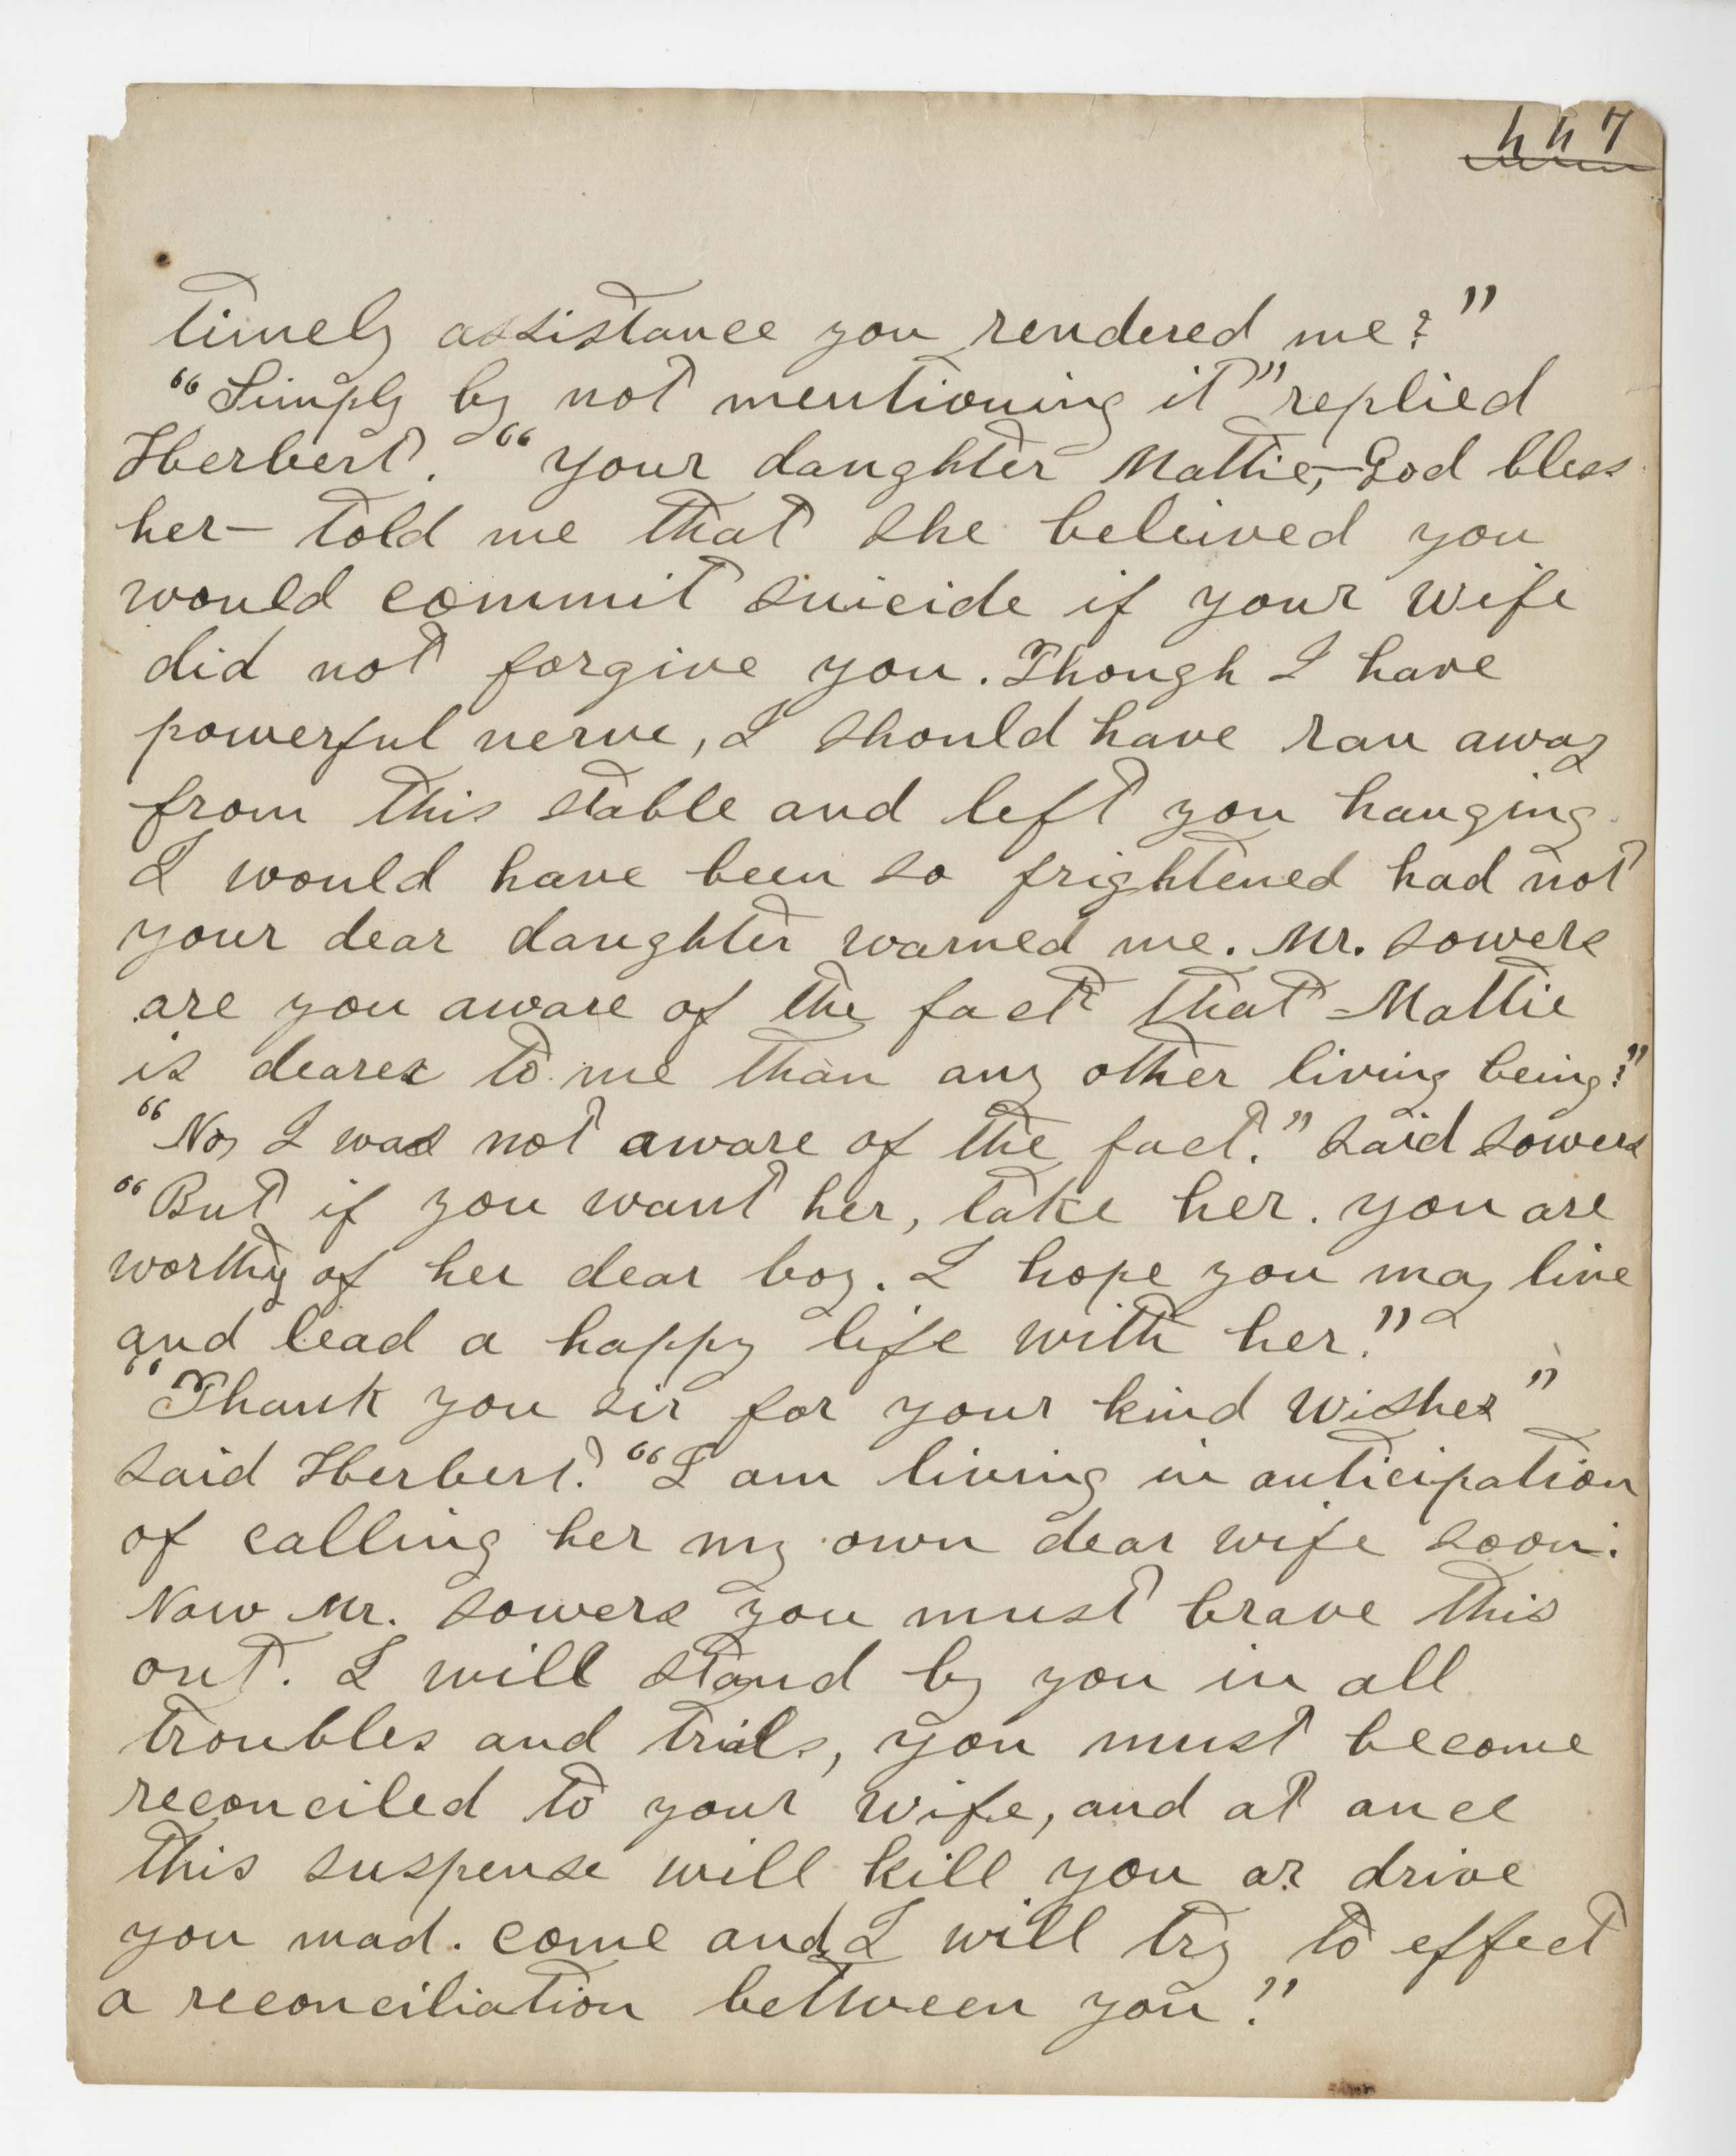 447
timely assistance you rendered me?"
"Simply by not mentioning it" replied
Herbert. "your daughter Mattie,—God bless
her— told me that she beleived you
would commit suicide if your wife
did not forgive you. Though I have
powerful nerve, I should have ran away
from this stable and left you hanging
I would have been so frightened had not
your dear daughter warned me. Mr. Sowers
are you aware of the fact that Mattie
is dearer to me than any other living being?"
"No, I was not aware of the fact." said Sowers
"But if you want her, take her. you are
worthy of her dear boy. I hope you may live
and lead a happy life with her."
"Thank you sir for your kind wishes"
said Herbert. "I am living in anticipation
of calling her my own dear wife soon.
Now Mr. Sowers you must brave this
out. I will stand by you in all
troubles and trials, you must become
reconciled to your wife, and at once
this suspense will kill you or drive
you mad. come and I will try to effect
a reconciliation between you."